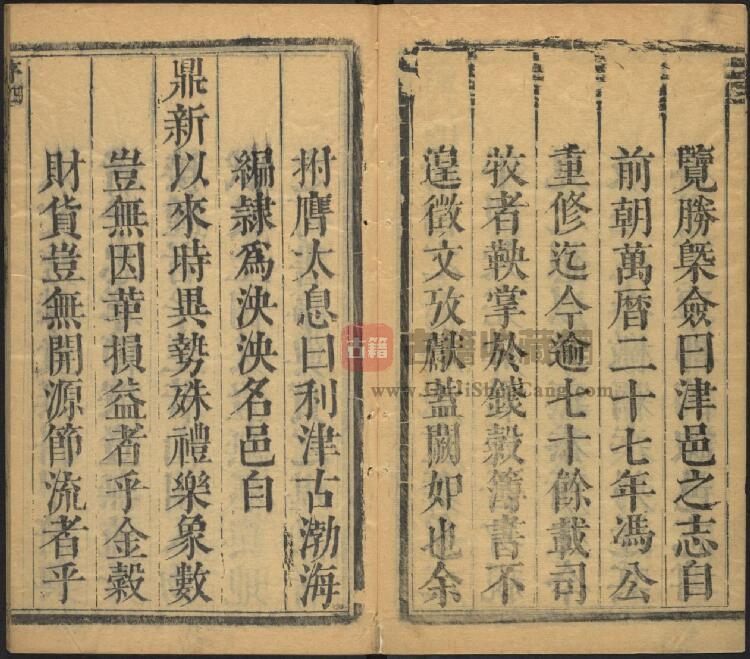 覽勝槩僉曰津邑之志自
前朝萬曆二十七年馮公
重修迄今逾七十餘載司
牧者鞅掌於錢穀簿書不
遑徵文攷獻盖闕如也余
拊膺太息曰利津古渤海
編隷爲泱泱名邑自
鼎新以來時異勢殊禮樂象數
豈無因革損益者乎金穀
財貨豈無開源節流者乎
古籍